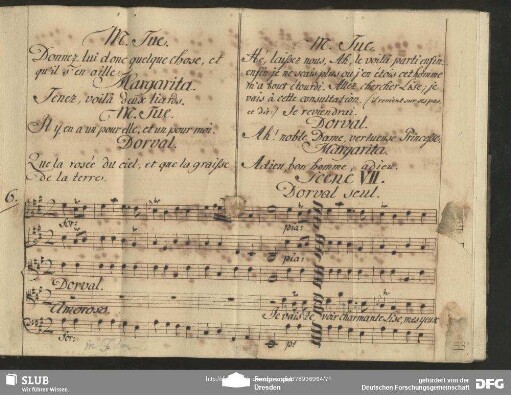 M. Tue.
Donnez lui donc quelque chose, et
qu'il s'en aille.
Margarita.
Tenez, voilà deux liards.
M. Tue.
Il y en a un pour elle, et un pour moi.
Dorval.
Que la rosée du ciel, et que la graisse
de la terre.
M. Tue.
He, laissez nous, Ah, le voilà parti enfin.
enfin je ne scais plus ou j'en etois cet homme
m'a tout etourdi. Allez chercher Lise, je
vais à cette consultation. (il revient sur ses pas,
et dit:) Je reviendrai.
Dorval.
Ah! noble Dame, vertueuse Princesse.
Margarita.
Adieu bon homme, adieu.
Scene VII.
Dorval seul.
6.
for:
pia:
pia:
Dorval.
Amoroso.
Je vais te voir charmante Lise, mes yeux
for:
p:
SLUB
Wir führen Wissen.
Dresden
gefördert von der
Deutschen Forschungsgemeinschaft
DFG